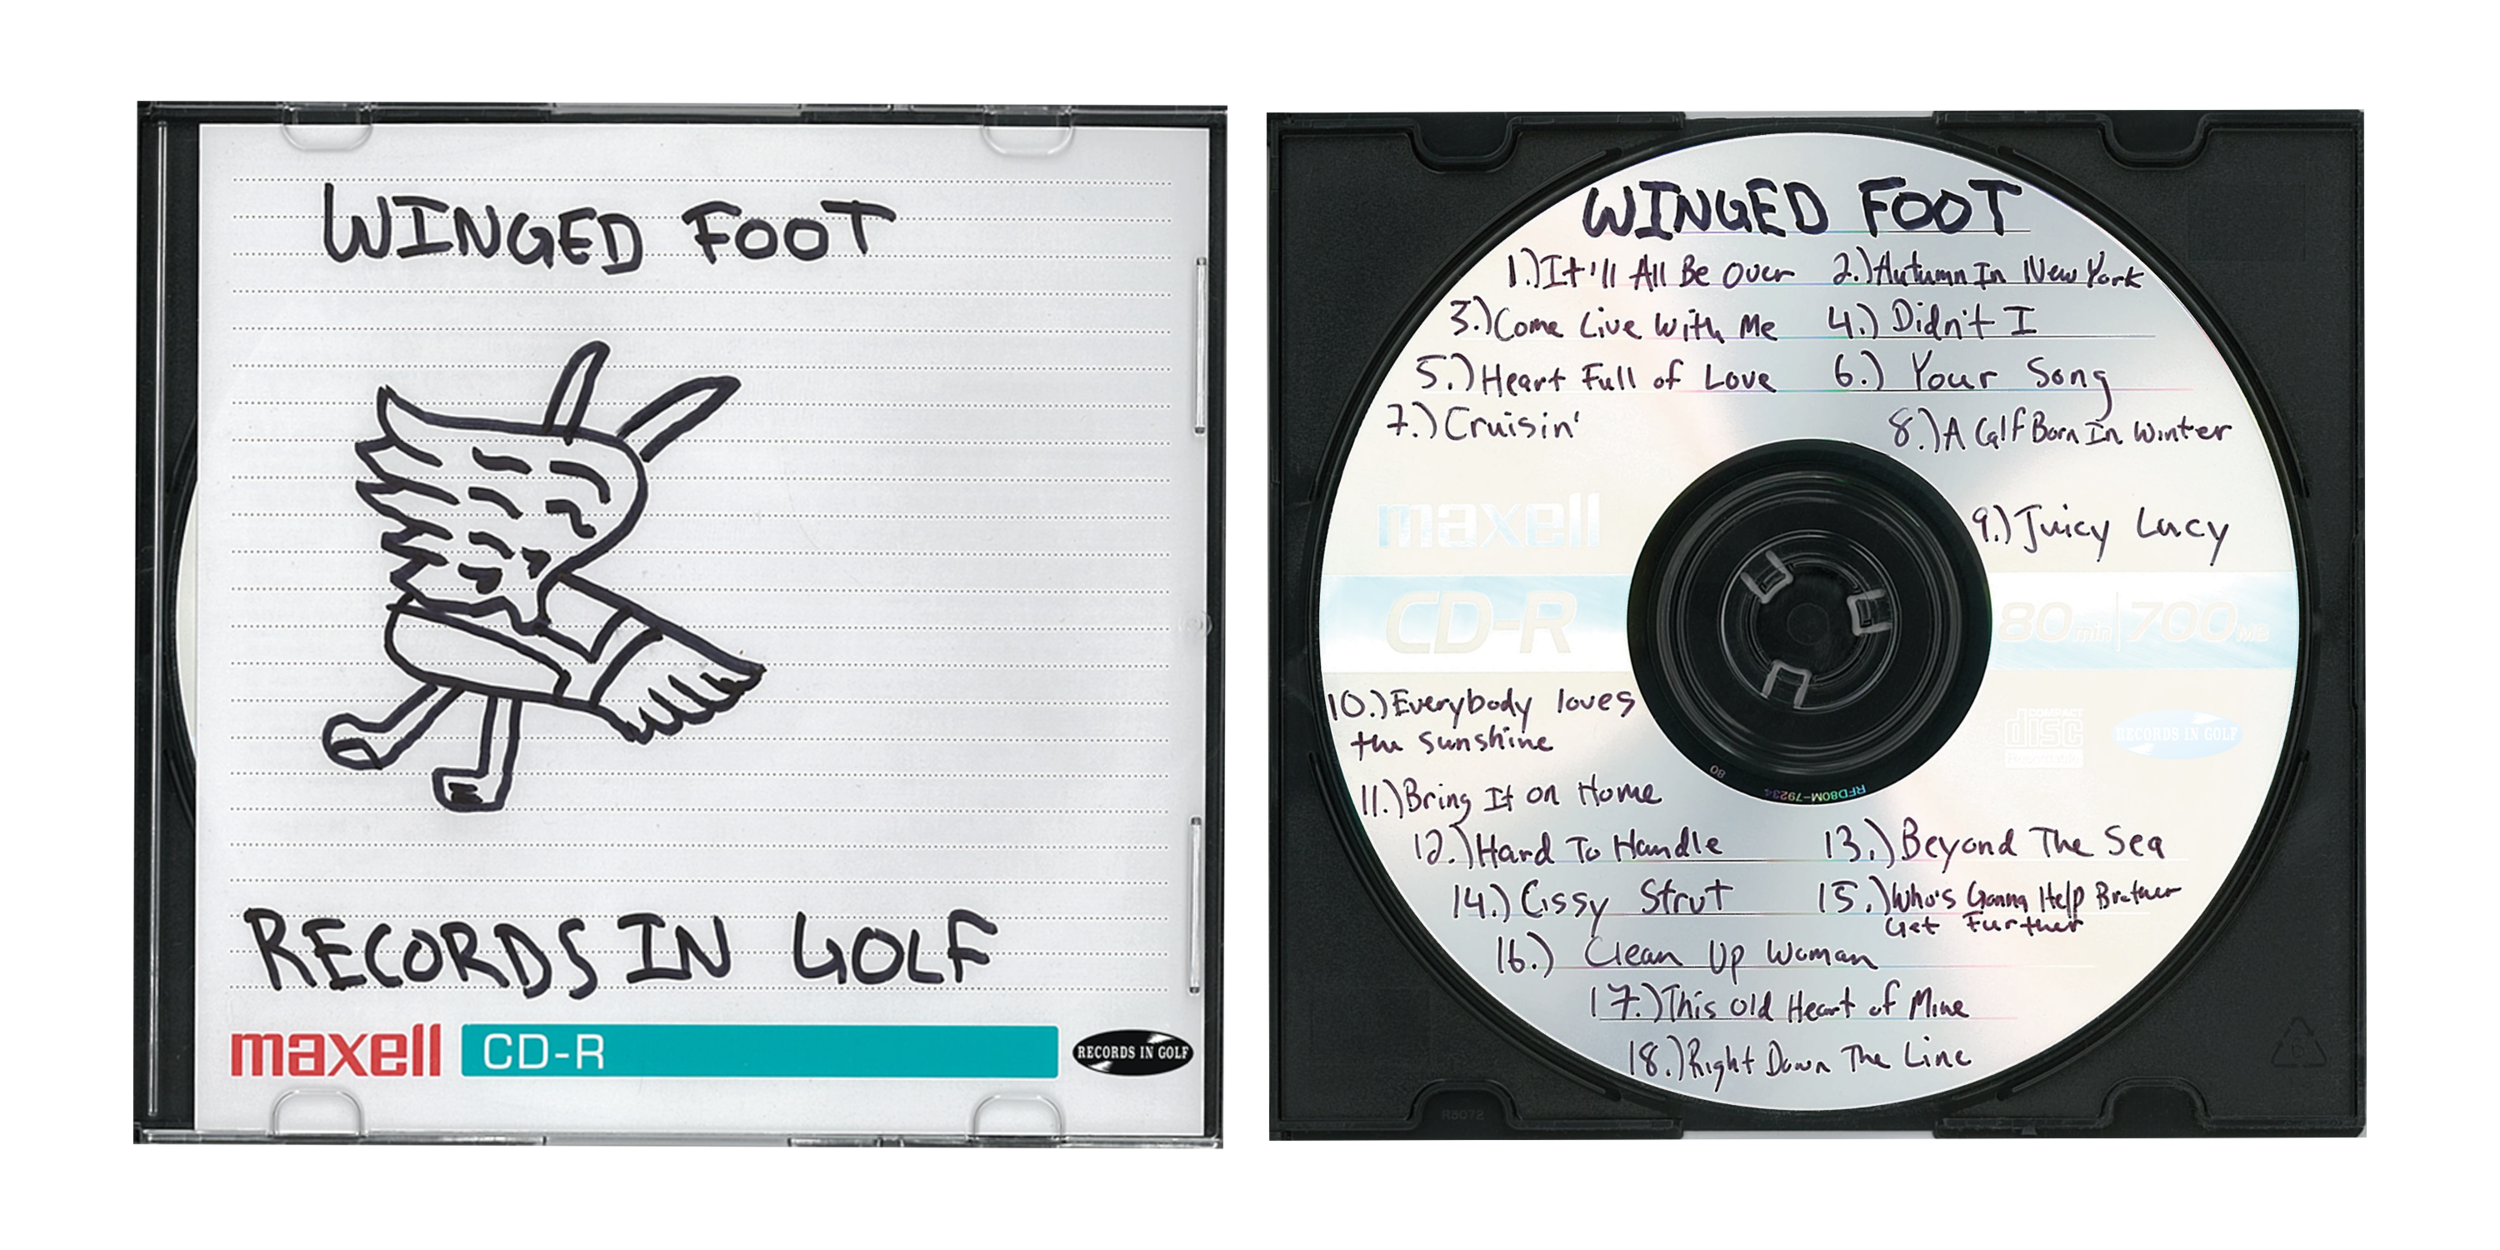 WINGED FOOT
RECORDS IN GOLF
maxell CD-R RECORDS IN GOLF
WINGED FOOT
1.) It'll All Be Over 2.) Autumn In New York
3.) Come Live With Me 4.) Didn't I
5.) Heart Full of Love 6.) Your Song
7.) Cruisin' 8.) A Calf Born In Winter
maxell 9.) Juicy Lucy
CD-R 80 min 700 MB
10.) Everybody loves
the sunshine
COMPACT disc Recordable RECORDS IN GOLF
11.) Bring It on Home
80 RFD80M-79234
12.) Hard To Handle 13.) Beyond The Sea
14.) Cissy Strut 15.) Who's Gonna Help Brother
Get Further
16.) Clean Up Woman
17.) This Old Heart of Mine
18.) Right Down The Line
R3072